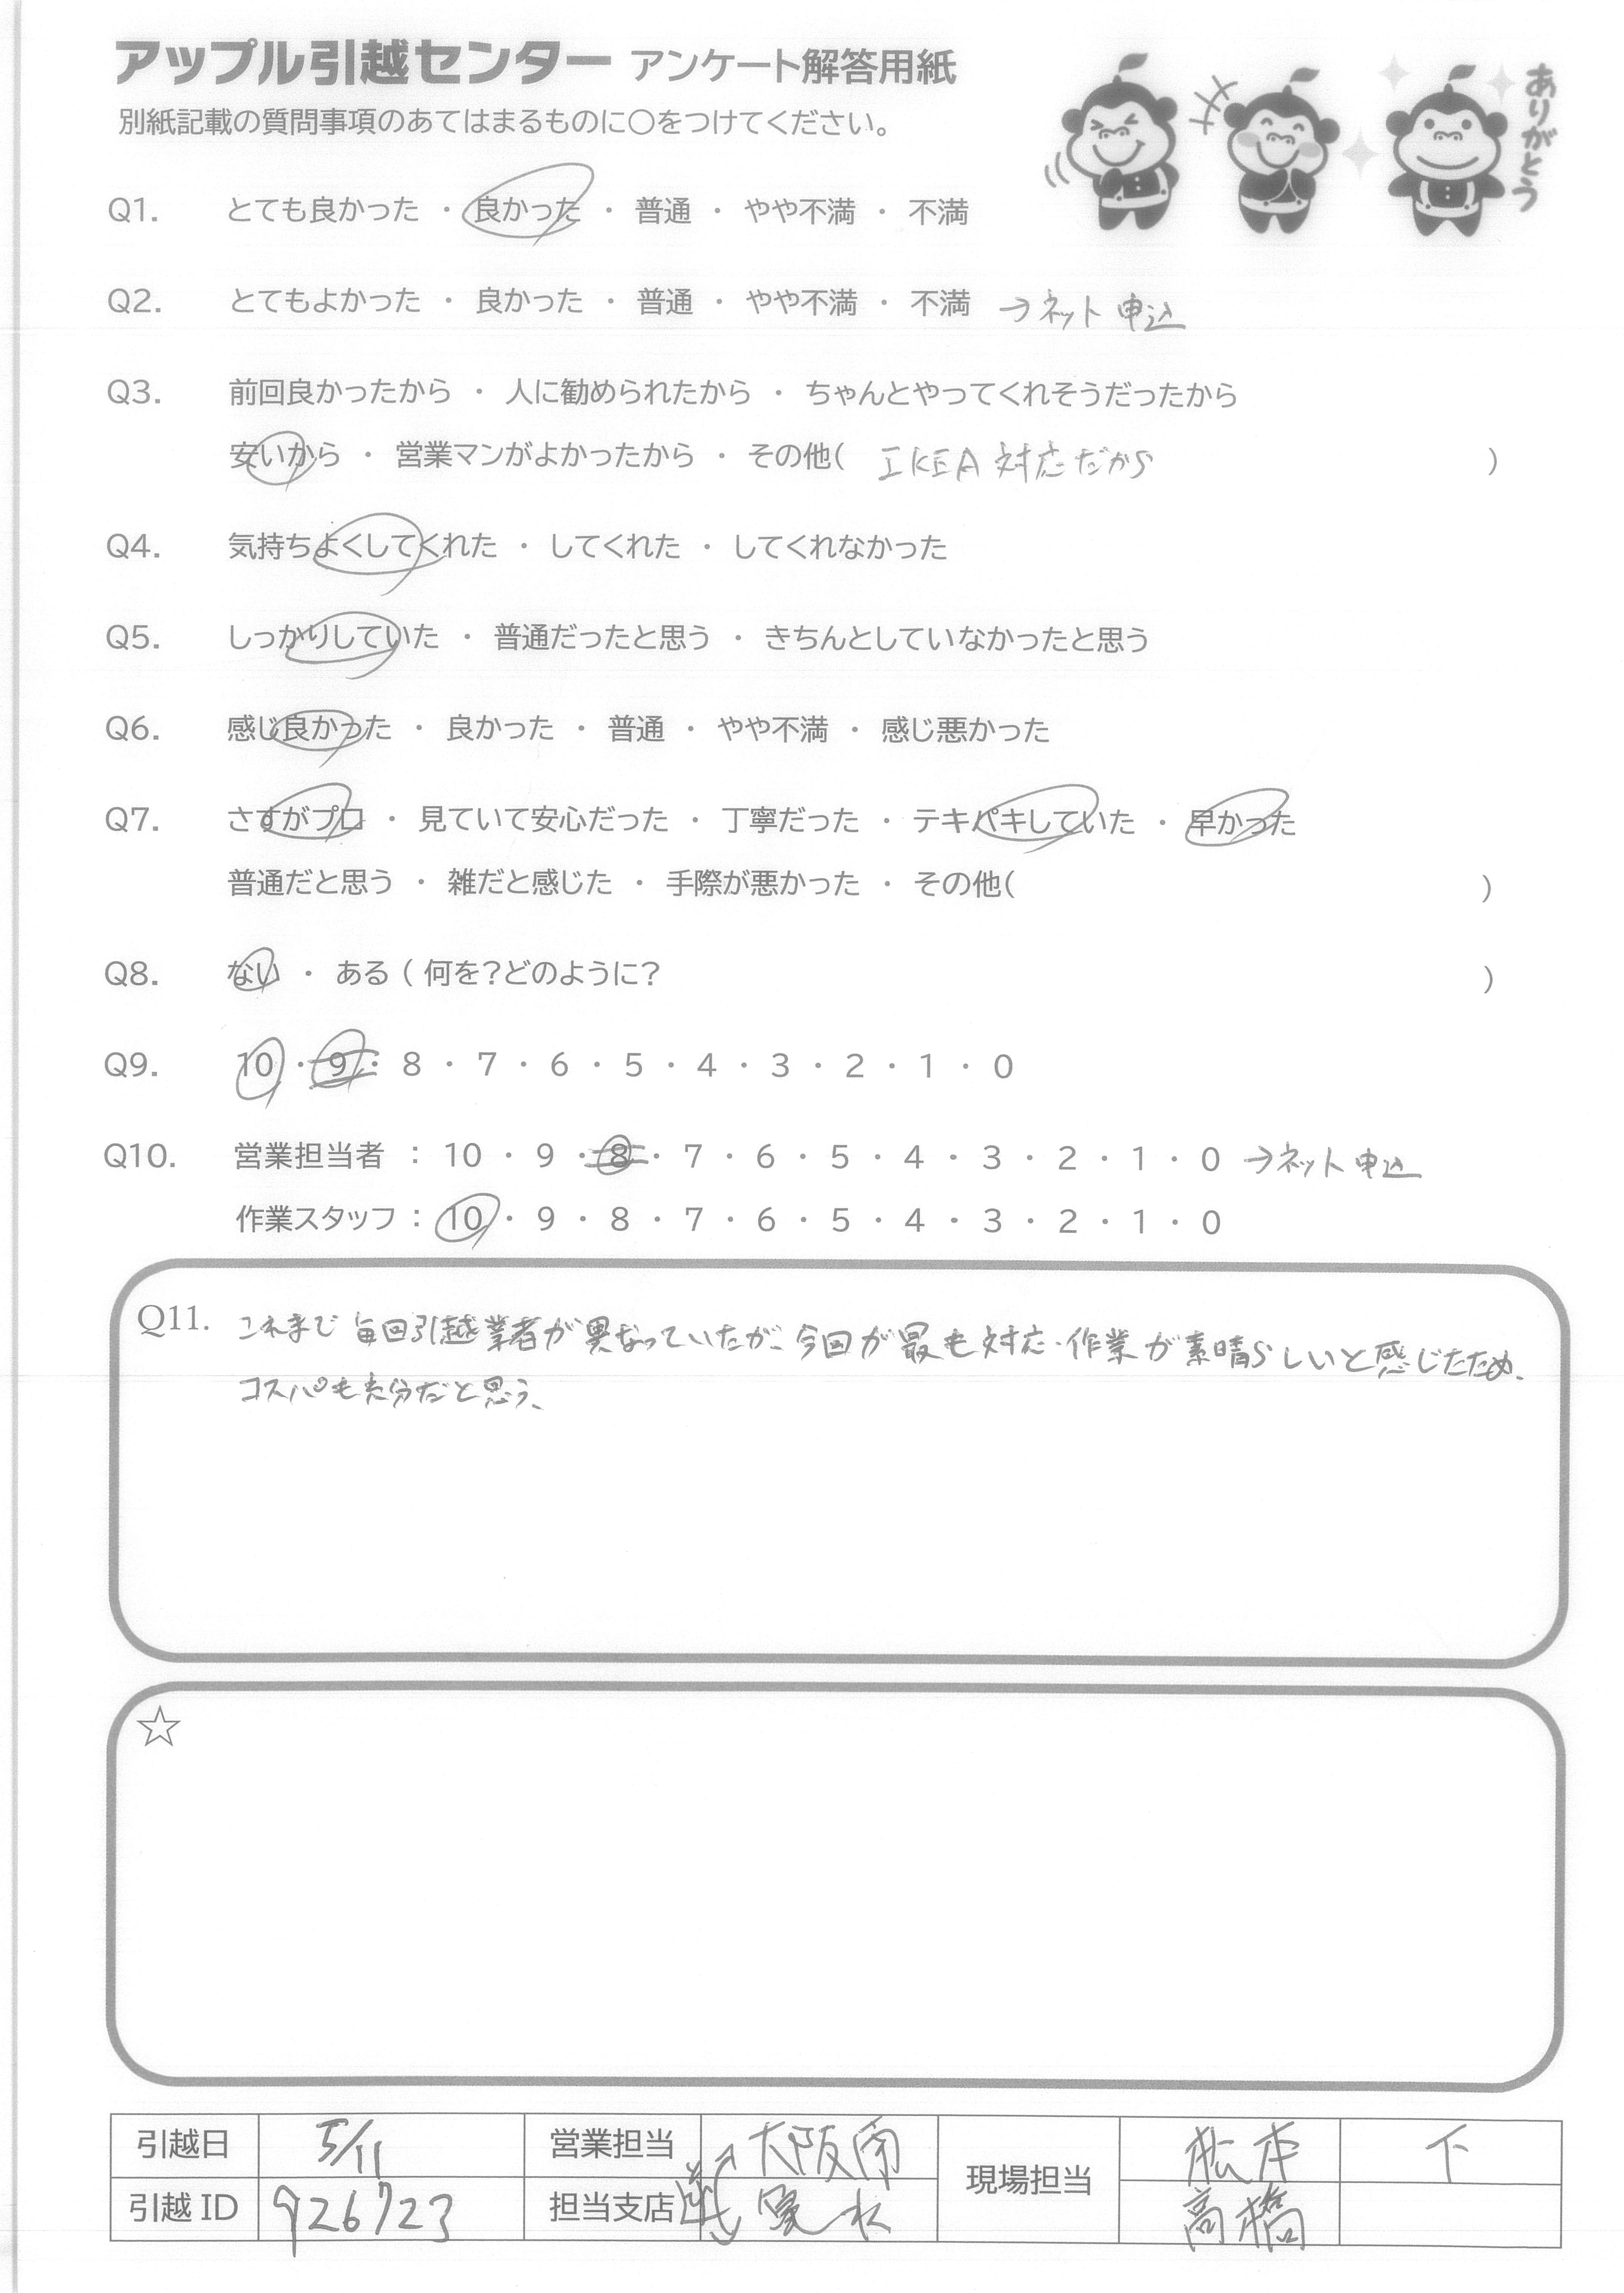 アップル引越センター アンケート解答用紙
別紙記載の質問事項のあてはまるものに〇をつけてください。
ありがとう
Q1. とても良かった ・ 良かった ・ 普通 ・ やや不満 ・ 不満
Q2. とてもよかった ・ 良かった ・ 普通 ・ やや不満 ・ 不満 →ネット申込
Q3. 前回良かったから ・ 人に勧められたから ・ ちゃんとやってくれそうだったから
安いから ・ 営業マンがよかったから ・ その他( IKEA対応だから )
Q4. 気持ちよくしてくれた ・ してくれた ・ してくれなかった
Q5. しっかりしていた ・ 普通だったと思う ・ きちんとしていなかったと思う
Q6. 感じ良かった ・ 良かった ・ 普通 ・ やや不満 ・ 感じ悪かった
Q7. さすがプロ ・ 見ていて安心だった ・ 丁寧だった ・ テキパキしていた ・ 早かった
普通だと思う ・ 雑だと感じた ・ 手際が悪かった ・ その他( )
Q8. ない ・ ある ( 何を?どのように? )
Q9. 10 ・ 9 ・ 8 ・ 7 ・ 6 ・ 5 ・ 4 ・ 3 ・ 2 ・ 1 ・ 0
Q10. 営業担当者 : 10 ・ 9 ・ 8 ・ 7 ・ 6 ・ 5 ・ 4 ・ 3 ・ 2 ・ 1 ・ 0 →ネット申込
作業スタッフ : 10 ・ 9 ・ 8 ・ 7 ・ 6 ・ 5 ・ 4 ・ 3 ・ 2 ・ 1 ・ 0
Q11. これまで毎回引越業者が異なっていたが、今回が最も対応・作業が素晴らしいと感じたため、
コスパも充分だと思う、
☆
引越日 5/11 営業担当 大阪南 現場担当 松本 下
引越ID 926723 担当支店 逆 高橋